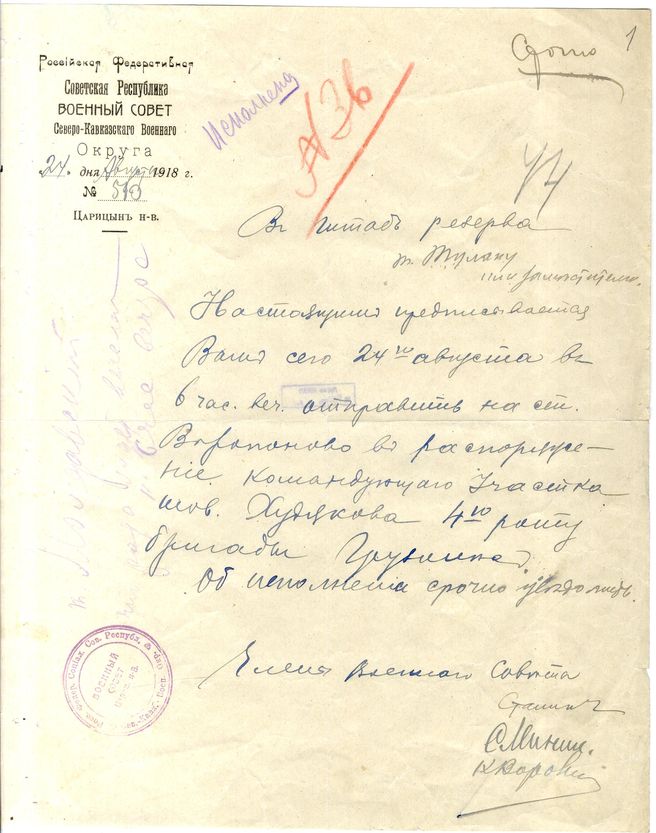 1
Срочно
Россійская Федеративная
Советская Республика
ВОЕННЫЙ СОВЕТ
Северо-Кавказскаго Военнаго
Округа
„24“ дня Августа 1918 г.
№ 573
Царицынъ н-в.
Исполнено
№ 36
44
Въ Штабъ резерва
т. Тулаку
или заместителю.
Настоящим предписывается
Вам сего 24го августа въ
6 час. веч. отправить на ст.
Воропоново в распоряже-
ніе командующаго Участка
тов. Худякова 4ю роту
бригады Грузолеса
Об исполнении срочно уведомить.
Члены Военного Совета
Сталин
С. Минин.
К Ворош
Рос. Федер. Социал. Сов. Республ.
ВОЕННЫЙ
Совет